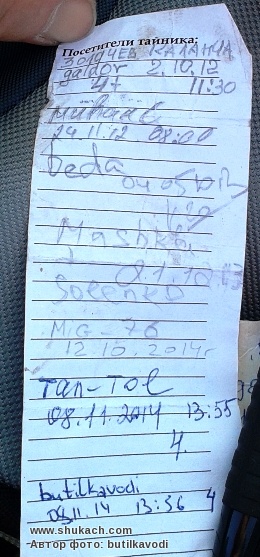 Посетители тайника:
ЗОЛОЧЕВ КАЛАНЧА
galdor 2.10.12
47 11:30
29.11.12 08:00
Mashka
+
Solenko
MiG-76
12 10.2014г
Tan-Tol
08.11.2014 13:55
4.
butilkavodi
08.11.14 13:56 4
www.shukach.com
Автор фото: butilkavodi